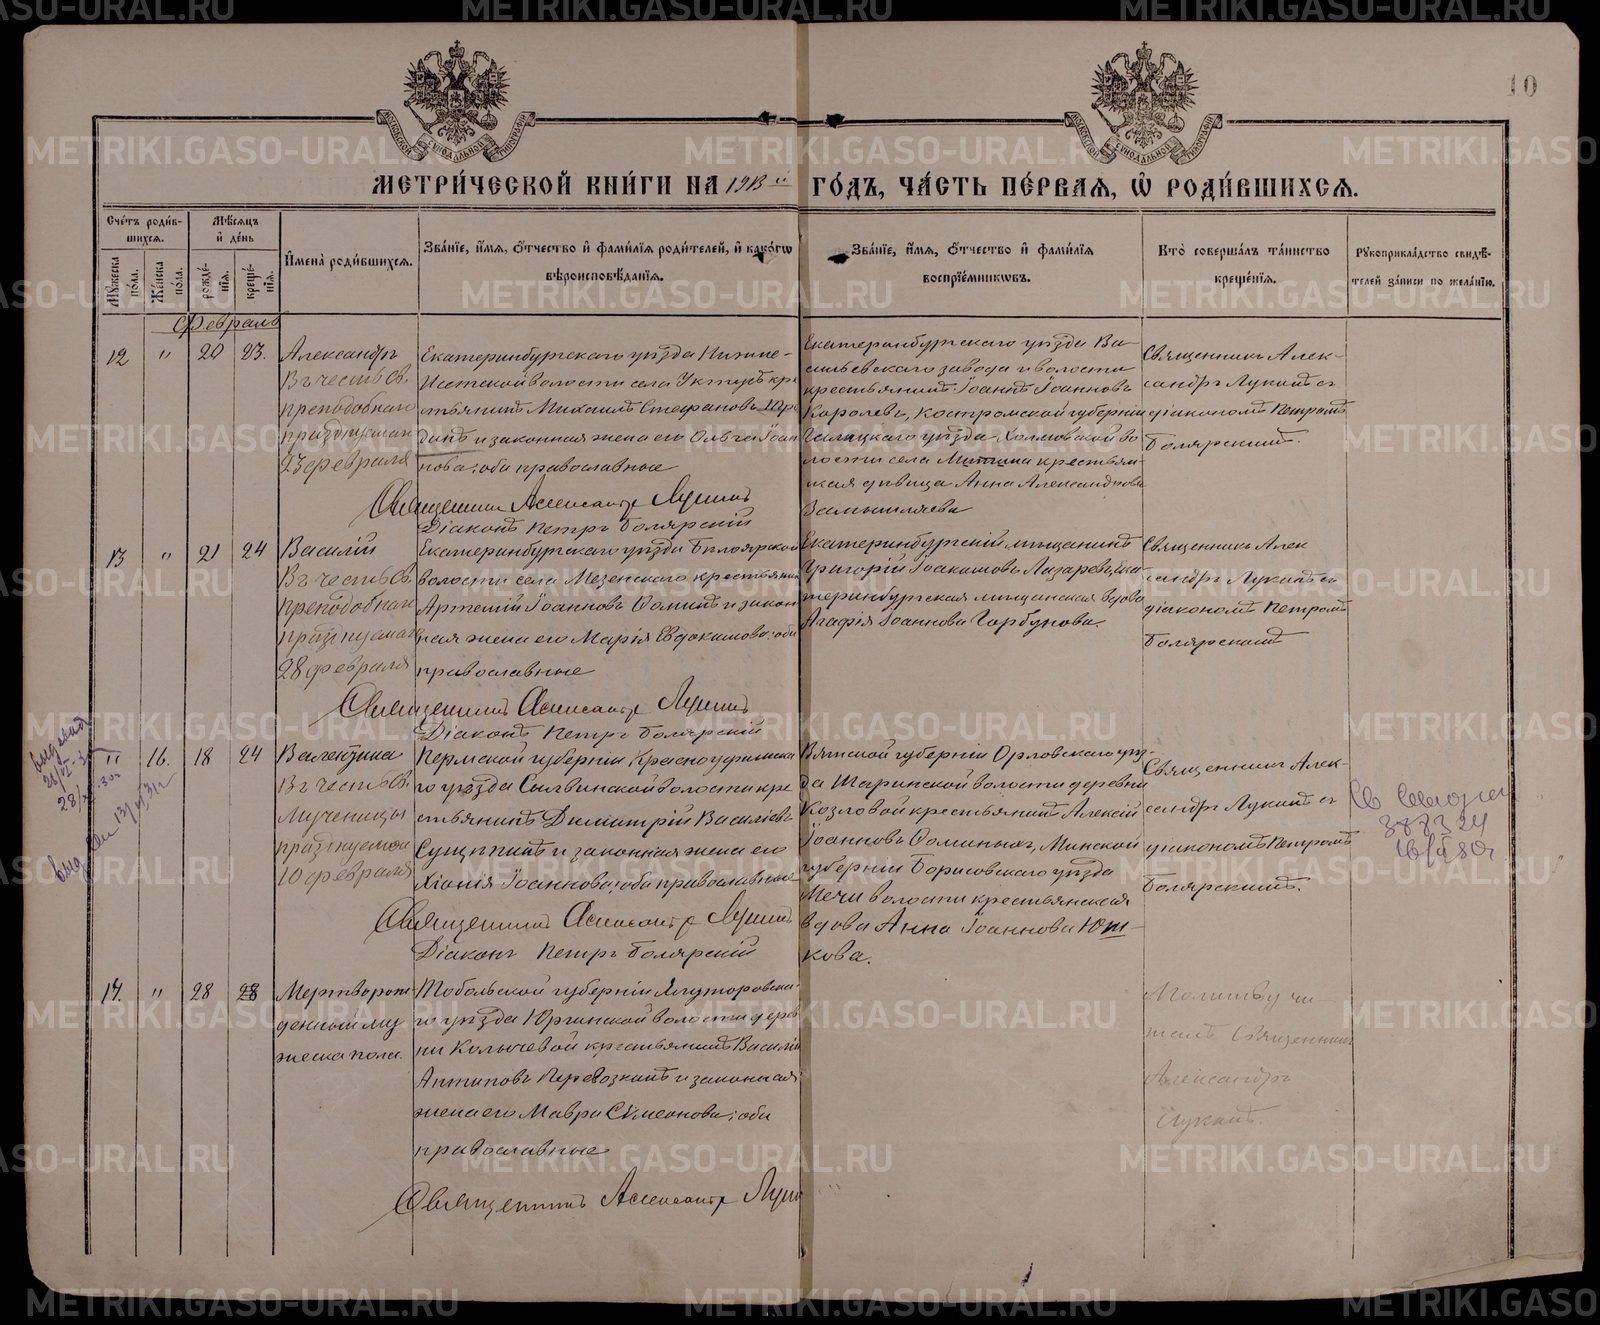 10
МЕТРИ́ЧЕСКОЙ КНИ́ГИ НА 1913 ГО́ДЪ, ЧА́СТЬ ПЕ́РВАѦ, Ѡ҆ РОДИ́ВШИХСѦ.
Сче́тъ роди́в-
шихсѧ.
Мѣ́сѧцъ
и҆ де́нь
Мꙋ́жеска по́ла.
Же́нска по́ла.
рожде́-
нїѧ.
креще́-
нїѧ.
И҆мена̀ роди́вшихсѧ.
Зва́нїе, и҆́мѧ, ѻ҆́тчество и҆ фами́лїѧ роди́телей, и҆ како́гѡ
вѣроисповѣ́данїѧ.
Зва́нїе, и҆́мѧ, ѻ҆́тчество и҆ фами́лїѧ
воспрїе́мникѡвъ.
Кто̀ соверша́лъ та́инство
креще́нїѧ.
Рꙋкоприкла́дство свидѣ́-
телей за́писи по жела́нїю.
Февраль
12 " 20 23.
Александръ
Въ честь Св.
преподобнаго
празднуемаго
23 февраля
Екатеринбургскаго уѣзда Нижне-
Исетской волости села Уктусъ кре
стьянинъ Михаилъ Стефановъ
и законная жена его Ольга Іоан
нова; оба православные
Священникъ Александръ Лукинъ
Діаконъ Петръ Болярскій
Екатеринбургскаго уѣзда Ва-
сильевскаго завода и волости
крестьянинъ Іоаннъ Іоанновъ
Королевъ, Костромской губерніи
Галицкаго уѣзда, Холмовской во
лости села Митина крестьян-
ская дѣвица Анна Александрова
Замышляева
Священникъ Алек-
сандръ Лукинъ съ
діакономъ Петромъ
Болярскимъ.
13 " 21 24
Василій
Въ честь Св.
преподобнаго
празднуемаго
28 февраля
Екатеринбургскаго уѣзда Бѣлоярской
волости села Мезенскаго крестьянинъ
Артемій Іоанновъ Ѳоминъ и закон
ная жена его Марія Евдокимова; оба
православные
Священникъ Александръ Лукинъ
Діаконъ Петръ Болярскій
Екатеринбургскій мѣщанинъ
Григорій Іоакимовъ Лазаревъ, Ека
теринбургская мѣщанская вдова
Агафія Іоаннова Горбунова.
Священникъ Алек
сандръ Лукинъ съ
діакономъ Петромъ
Болярскимъ
" 16. 18 24
Валентина
Въ честь Св.
Мученицы
празднуемой
10 февраля
Пермской губерніи Красноуфимска
го уѣзда Сылвинской волости кре
стьянинъ Димитрій Василіевъ
и законная жена его
Хіонія Іоаннова; оба православные
Священникъ Александръ Лукинъ
Діаконъ Петръ Болярскій
Вятской губерніи Орловскаго уѣз-
да Шаринской волости деревни
Козловой крестьянинъ Алексій
Іоанновъ Ѳоминыхъ, Минской
губерніи Борисовскаго уѣзда
волости крестьянская
вдова Анна Іоаннова Юш-
кова.
Священникъ Алек-
сандръ Лукинъ съ
діакономъ Петромъ
Болярскимъ.
14. " 28 28
Мертворож-
денный му
жеска пола.
Тобольской губерніи Ялуторовска-
го уѣзда Юргинской волости дерев
ни Колычевой крестьянинъ Василій
Антиповъ Перевозкинъ и законная
жена его Мавра Сѵмеонова; оба
православные
Священникъ Александръ Луки
Молитву чи-
талъ Священникъ
Александръ
Лукинъ.
METRIKI.GASO-URAL.RU